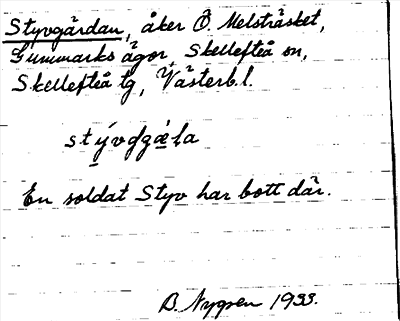 Styvgärdan, åker Ö. Melsträsket,
Gummarks ägor Skellefteå sn,
Skellefteå tg, Västerb. l.
En soldat Styv har bott där.
B. Nygren 1933.